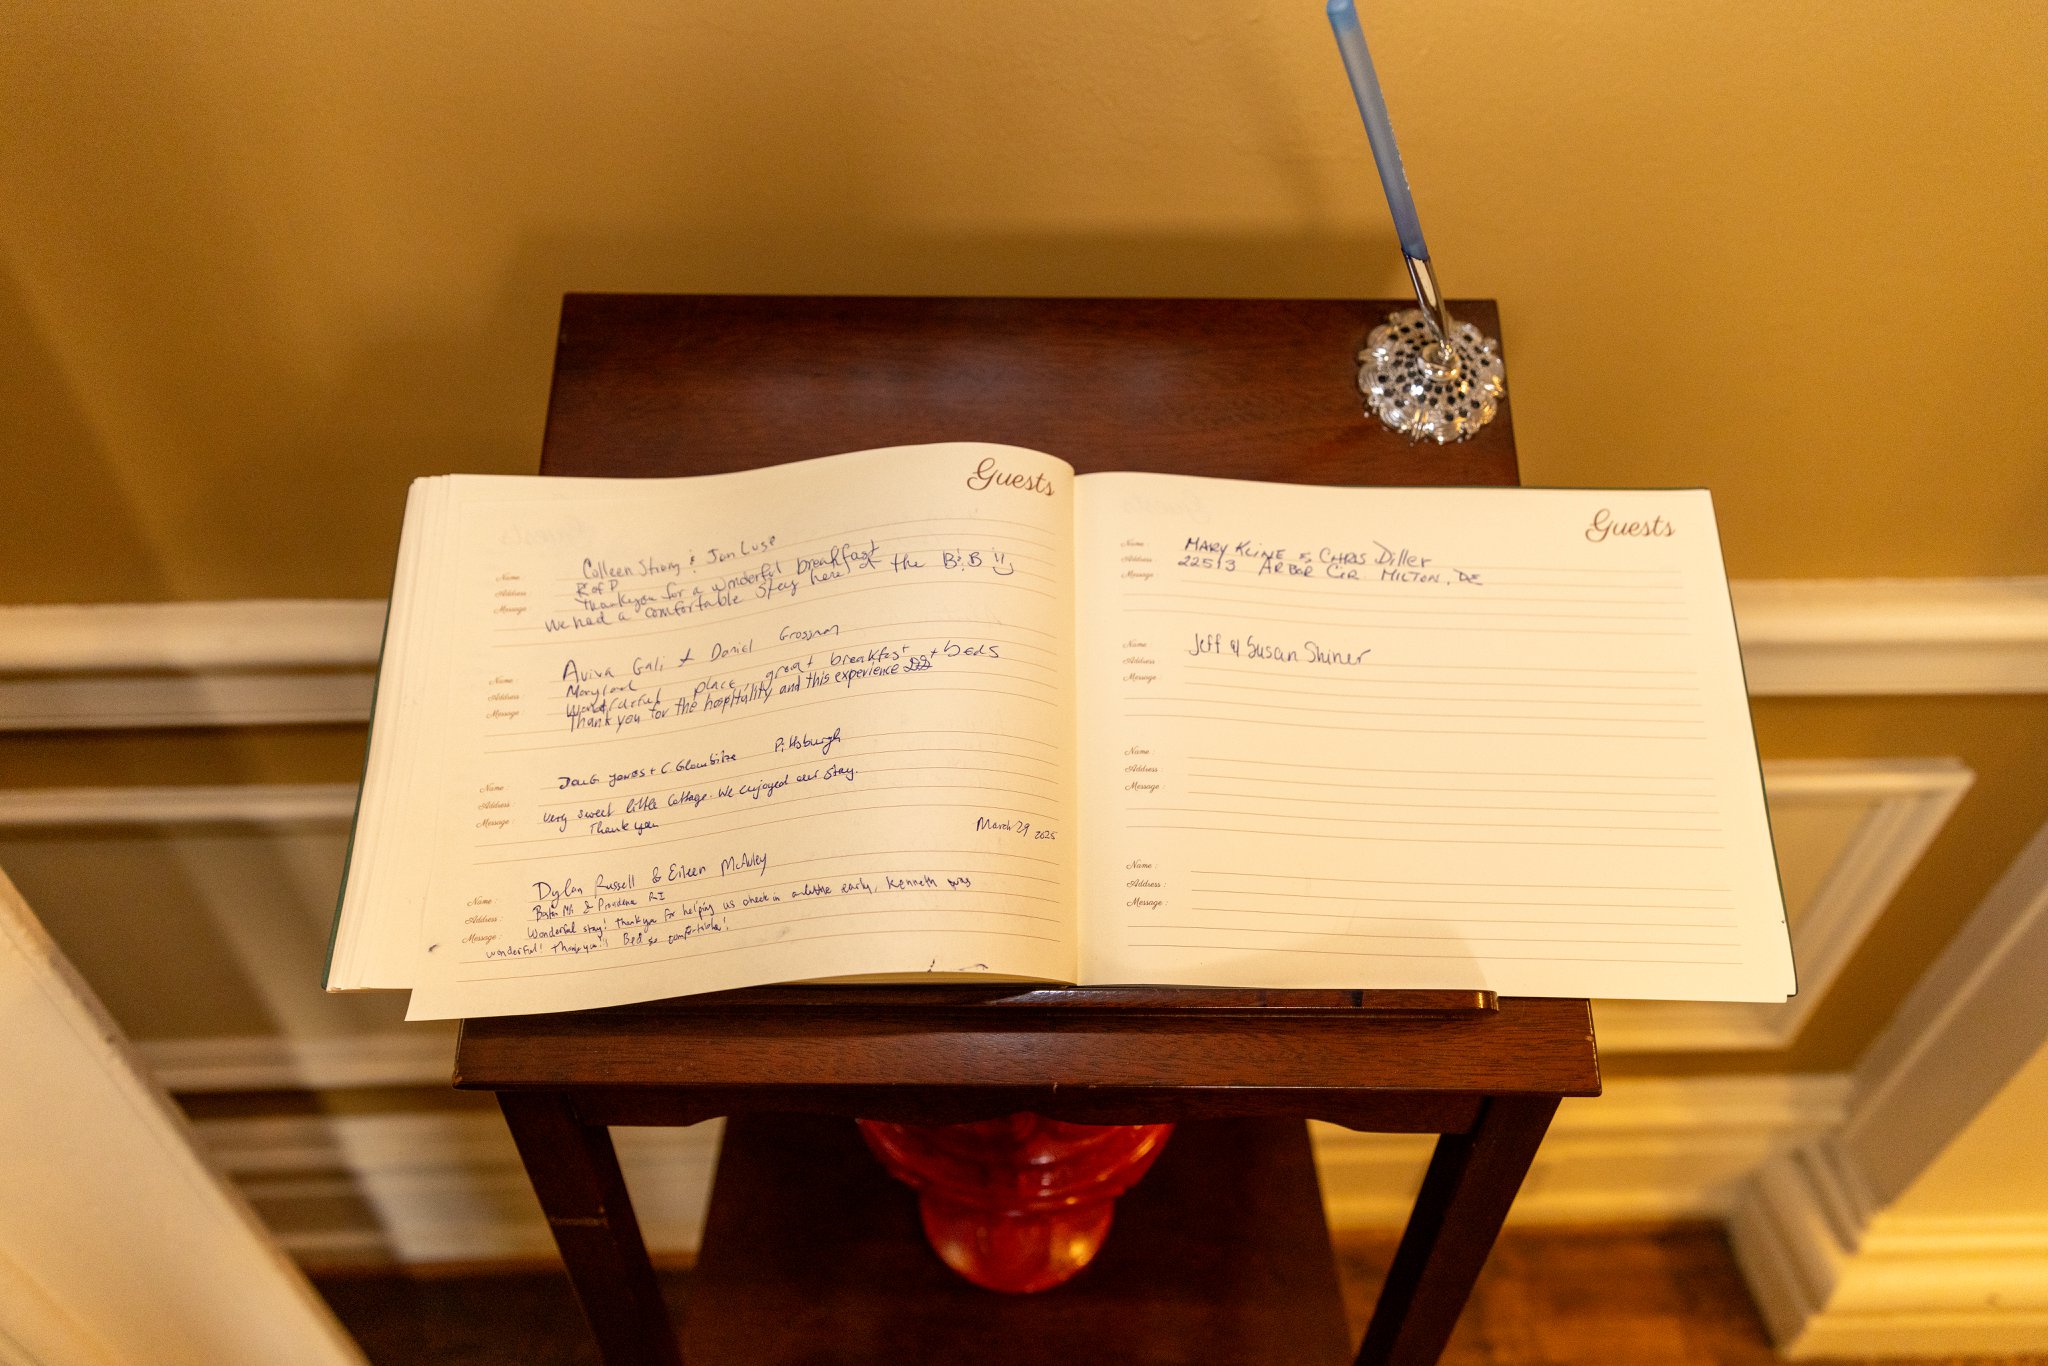 Guests
Name : Colleen Strong & Jon Luse
Address : P of P
Message : Thankyou for a wonderful breakfast
We had a comfortable stay here at the B&B !!
Name : Aviva Gali + Daniel Grossman
Address : Maryland
Message : Wonderful place, great breakfast + beds
Thank you for the hospitality and this experience
Name : Doug Jones + C Pittsburgh
Address :
Message : Very sweet little cottage. We enjoyed our stay.
Thank you
March 29 2025
Name : Dylan Russell & Eileen McAuley
Address : Boston MA & Providence RI
Message : Wonderful stay! Thank you for helping us check in a little early, Kenneth was
wonderful! Thank you!! Bed so comfortable!
Guests
Name : MARY KLINE & CHRIS Diller
Address : 22513 ARBOR Cir MILTON, DE
Message :
Name : Jeff & Susan Shiner
Address :
Message :
Name :
Address :
Message :
Name :
Address :
Message :